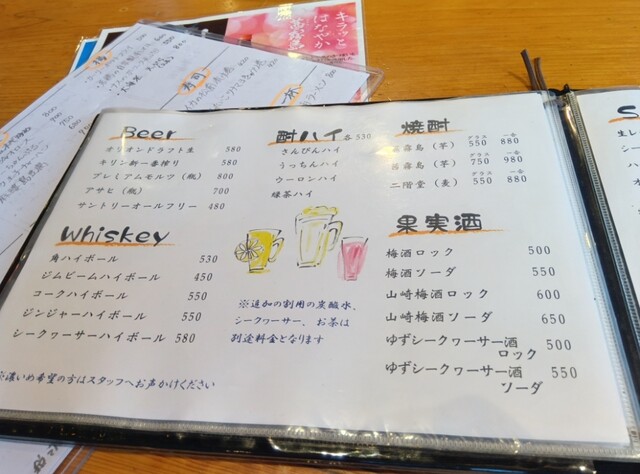 キラッと
はなやか
茜霧島
寿司
Beer
オリオンドラフト生 580
キリン新一番搾り 580
プレミアムモルツ（瓶） 800
アサヒ（瓶） 700
サントリーオールフリー 480
Whiskey
角ハイボール 530
ジムビームハイボール 450
コークハイボール 550
ジンジャーハイボール 550
シークヮーサーハイボール 580
※濃いめ希望の方はスタッフへお声かけください
酎ハイ 各530
さんぴんハイ
うっちんハイ
ウーロンハイ
緑茶ハイ
※追加の割用の炭酸水、
シークヮーサー、お茶は
別途料金となります
焼酎
グラス 一合
黒霧島（芋） 550 880
グラス 一合
茜霧島（芋） 750 980
グラス 一合
二階堂（麦） 550 880
果実酒
梅酒ロック 500
梅酒ソーダ 550
山崎梅酒ロック 600
山崎梅酒ソーダ 650
ゆずシークヮーサー酒 500
ロック
ゆずシークヮーサー酒 550
ソーダ